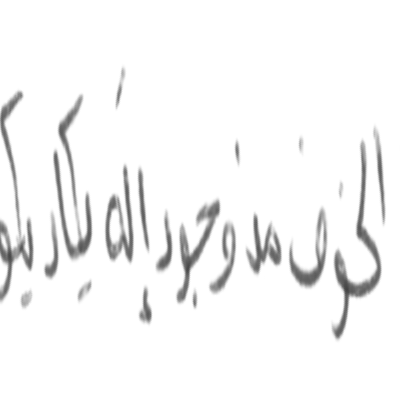 الخوف من وجود إله يكاد يكو